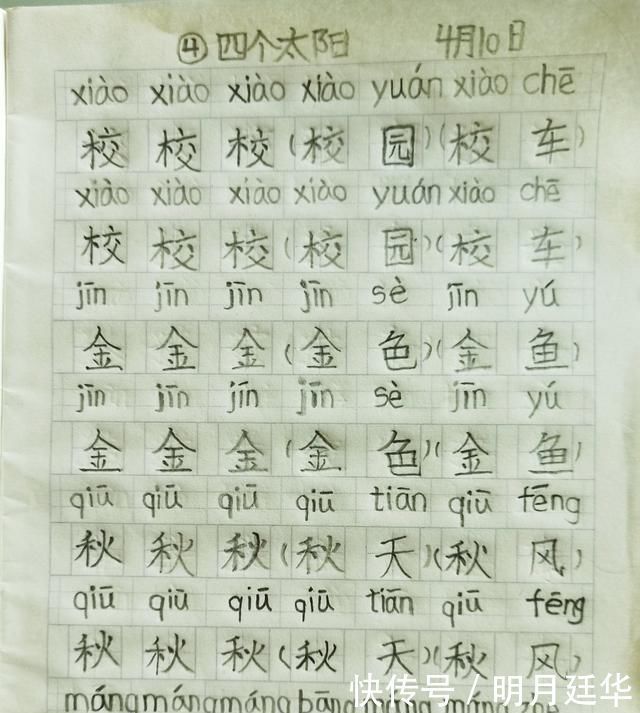 ④四个太阳 4月10日
xiào xiào xiào xiào yuán xiào chē
校 校 校(校 园)(校 车)
xiào xiào xiào xiào yuán xiào chē
校 校 校(校 园)(校 车)
jīn jīn jīn jīn sè jīn yú
金 金 金(金 色)(金 鱼)
jīn jīn jīn jīn sè jīn yú
金 金 金(金 色)(金 鱼)
qiū qiū qiū qiū tiān qiū fēng
秋 秋 秋(秋 天)(秋 风)
qiū qiū qiū qiū tiān qiū fēng
秋 秋 秋(秋 天)(秋 风)
máng máng máng bāng máng máng
快传号/明月廷华